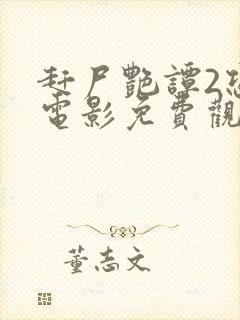 赶尸艷譚2恐
電影免費觀
董志文